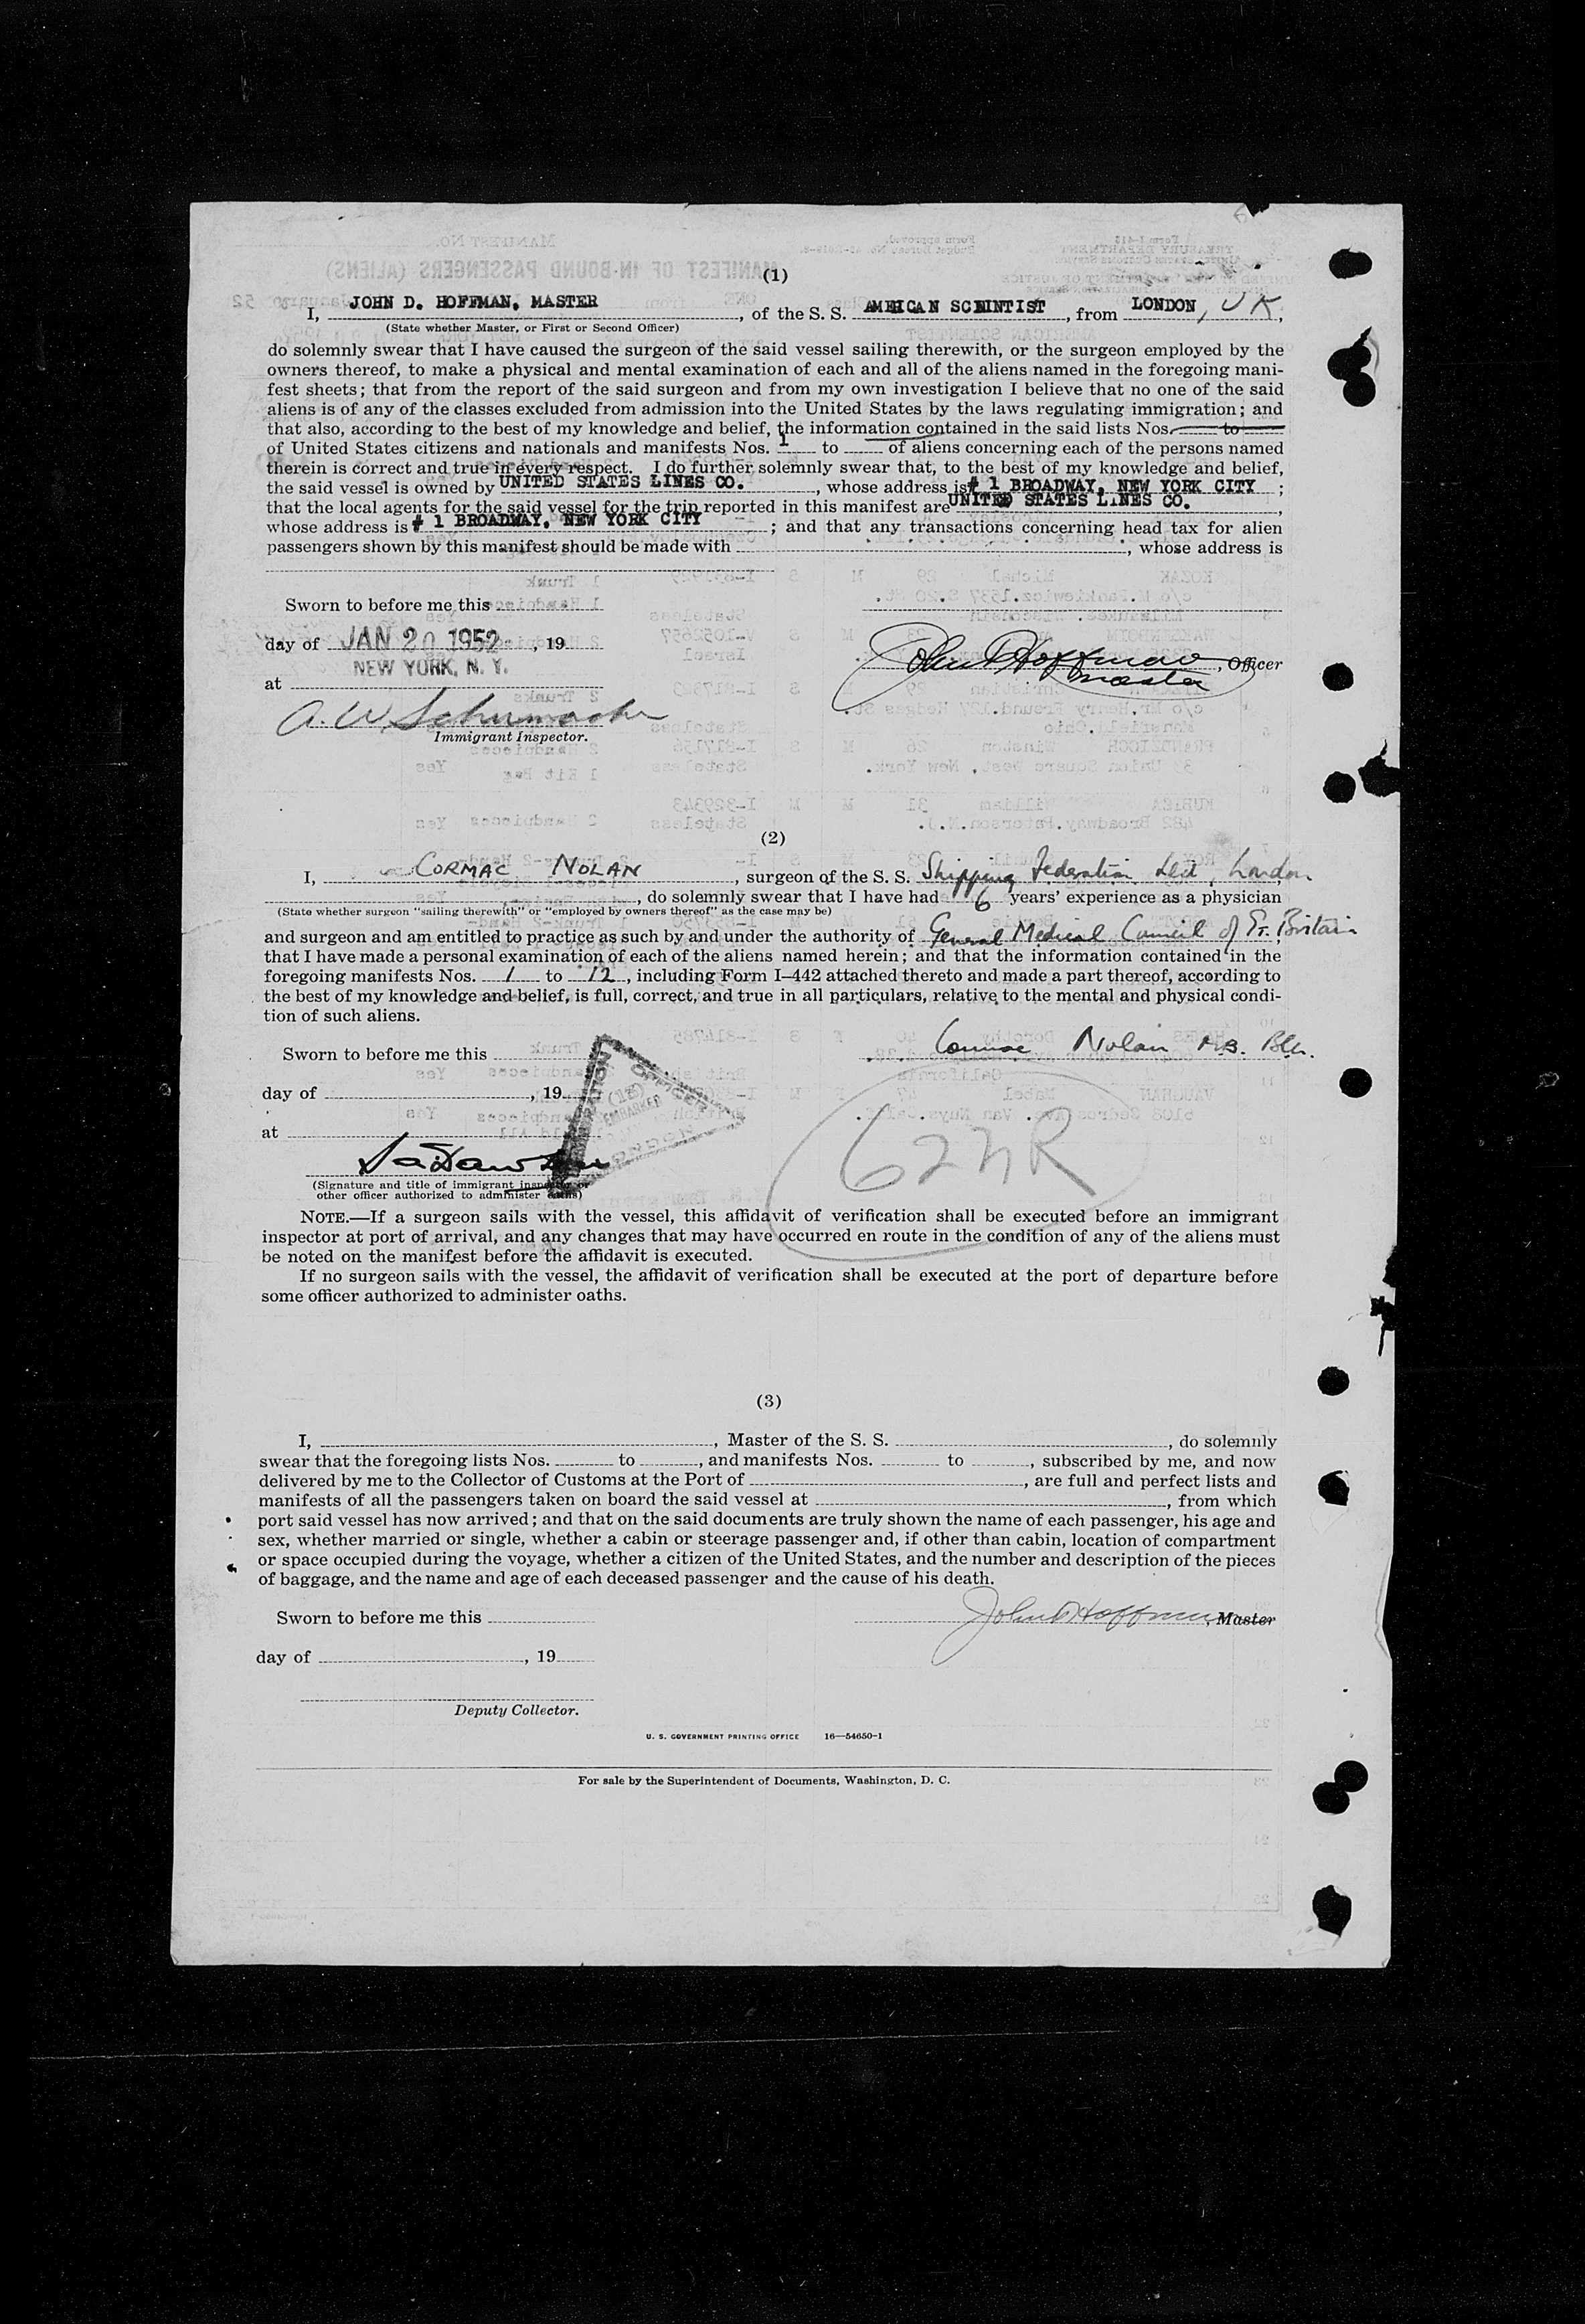 (1)
I, JOHN D. HOFFMAN, MASTER, of the S. S. AMEICAN SCEINTIST, from LONDON, UK,
(State whether Master, or First or Second Officer)
do solemnly swear that I have caused the surgeon of the said vessel sailing therewith, or the surgeon employed by the
owners thereof, to make a physical and mental examination of each and all of the aliens named in the foregoing mani-
fest sheets; that from the report of the said surgeon and from my own investigation I believe that no one of the said
aliens is of any of the classes excluded from admission into the United States by the laws regulating immigration; and
that also, according to the best of my knowledge and belief, the information contained in the said lists Nos. to
of United States citizens and nationals and manifests Nos. 1 to of aliens concerning each of the persons named
therein is correct and true in every respect. I do further solemnly swear that, to the best of my knowledge and belief,
the said vessel is owned by UNITED STATES LINES CO., whose address is # 1 BROADWAY, NEW YORK CITY ;
that the local agents for the said vessel for the trip reported in this manifest are UNITED STATES LINES CO.,
whose address is # 1 BROADWAY, NEW YORK CITY ; and that any transactions concerning head tax for alien
passengers shown by this manifest should be made with , whose address is
Sworn to before me this
day of JAN 20 1952, 19
NEW YORK, N. Y.
John D Hoffman, Officer
master
at
A. W. Schumacher
Immigrant Inspector.
(2)
I, CORMAC NOLAN, surgeon of the S. S. Shipping Federation Ltd, London
, do solemnly swear that I have had 6 years' experience as a physician
(State whether surgeon "sailing therewith" or "employed by owners thereof" as the case may be)
and surgeon and am entitled to practice as such by and under the authority of General Medical Council of Gt. Britain,
that I have made a personal examination of each of the aliens named herein; and that the information contained in the
foregoing manifests Nos. 1 to 12, including Form I–442 attached thereto and made a part thereof, according to
the best of my knowledge and belief, is full, correct, and true in all particulars, relative to the mental and physical condi-
tion of such aliens.
Sworn to before me this
Cormac Nolan M.B. BCh.
day of , 19
at
(Signature and title of immigrant inspector or
other officer authorized to administer oaths)
NOTE.—If a surgeon sails with the vessel, this affidavit of verification shall be executed before an immigrant
inspector at port of arrival, and any changes that may have occurred en route in the condition of any of the aliens must
be noted on the manifest before the affidavit is executed.
If no surgeon sails with the vessel, the affidavit of verification shall be executed at the port of departure before
some officer authorized to administer oaths.
(3)
I, , Master of the S. S. , do solemnly
swear that the foregoing lists Nos. to , and manifests Nos. to , subscribed by me, and now
delivered by me to the Collector of Customs at the Port of , are full and perfect lists and
manifests of all the passengers taken on board the said vessel at , from which
port said vessel has now arrived; and that on the said documents are truly shown the name of each passenger, his age and
sex, whether married or single, whether a cabin or steerage passenger and, if other than cabin, location of compartment
or space occupied during the voyage, whether a citizen of the United States, and the number and description of the pieces
of baggage, and the name and age of each deceased passenger and the cause of his death.
Sworn to before me this
John D Hoffman, Master
day of , 19
Deputy Collector.
U. S. GOVERNMENT PRINTING OFFICE 16—54650-1
For sale by the Superintendent of Documents, Washington, D. C.